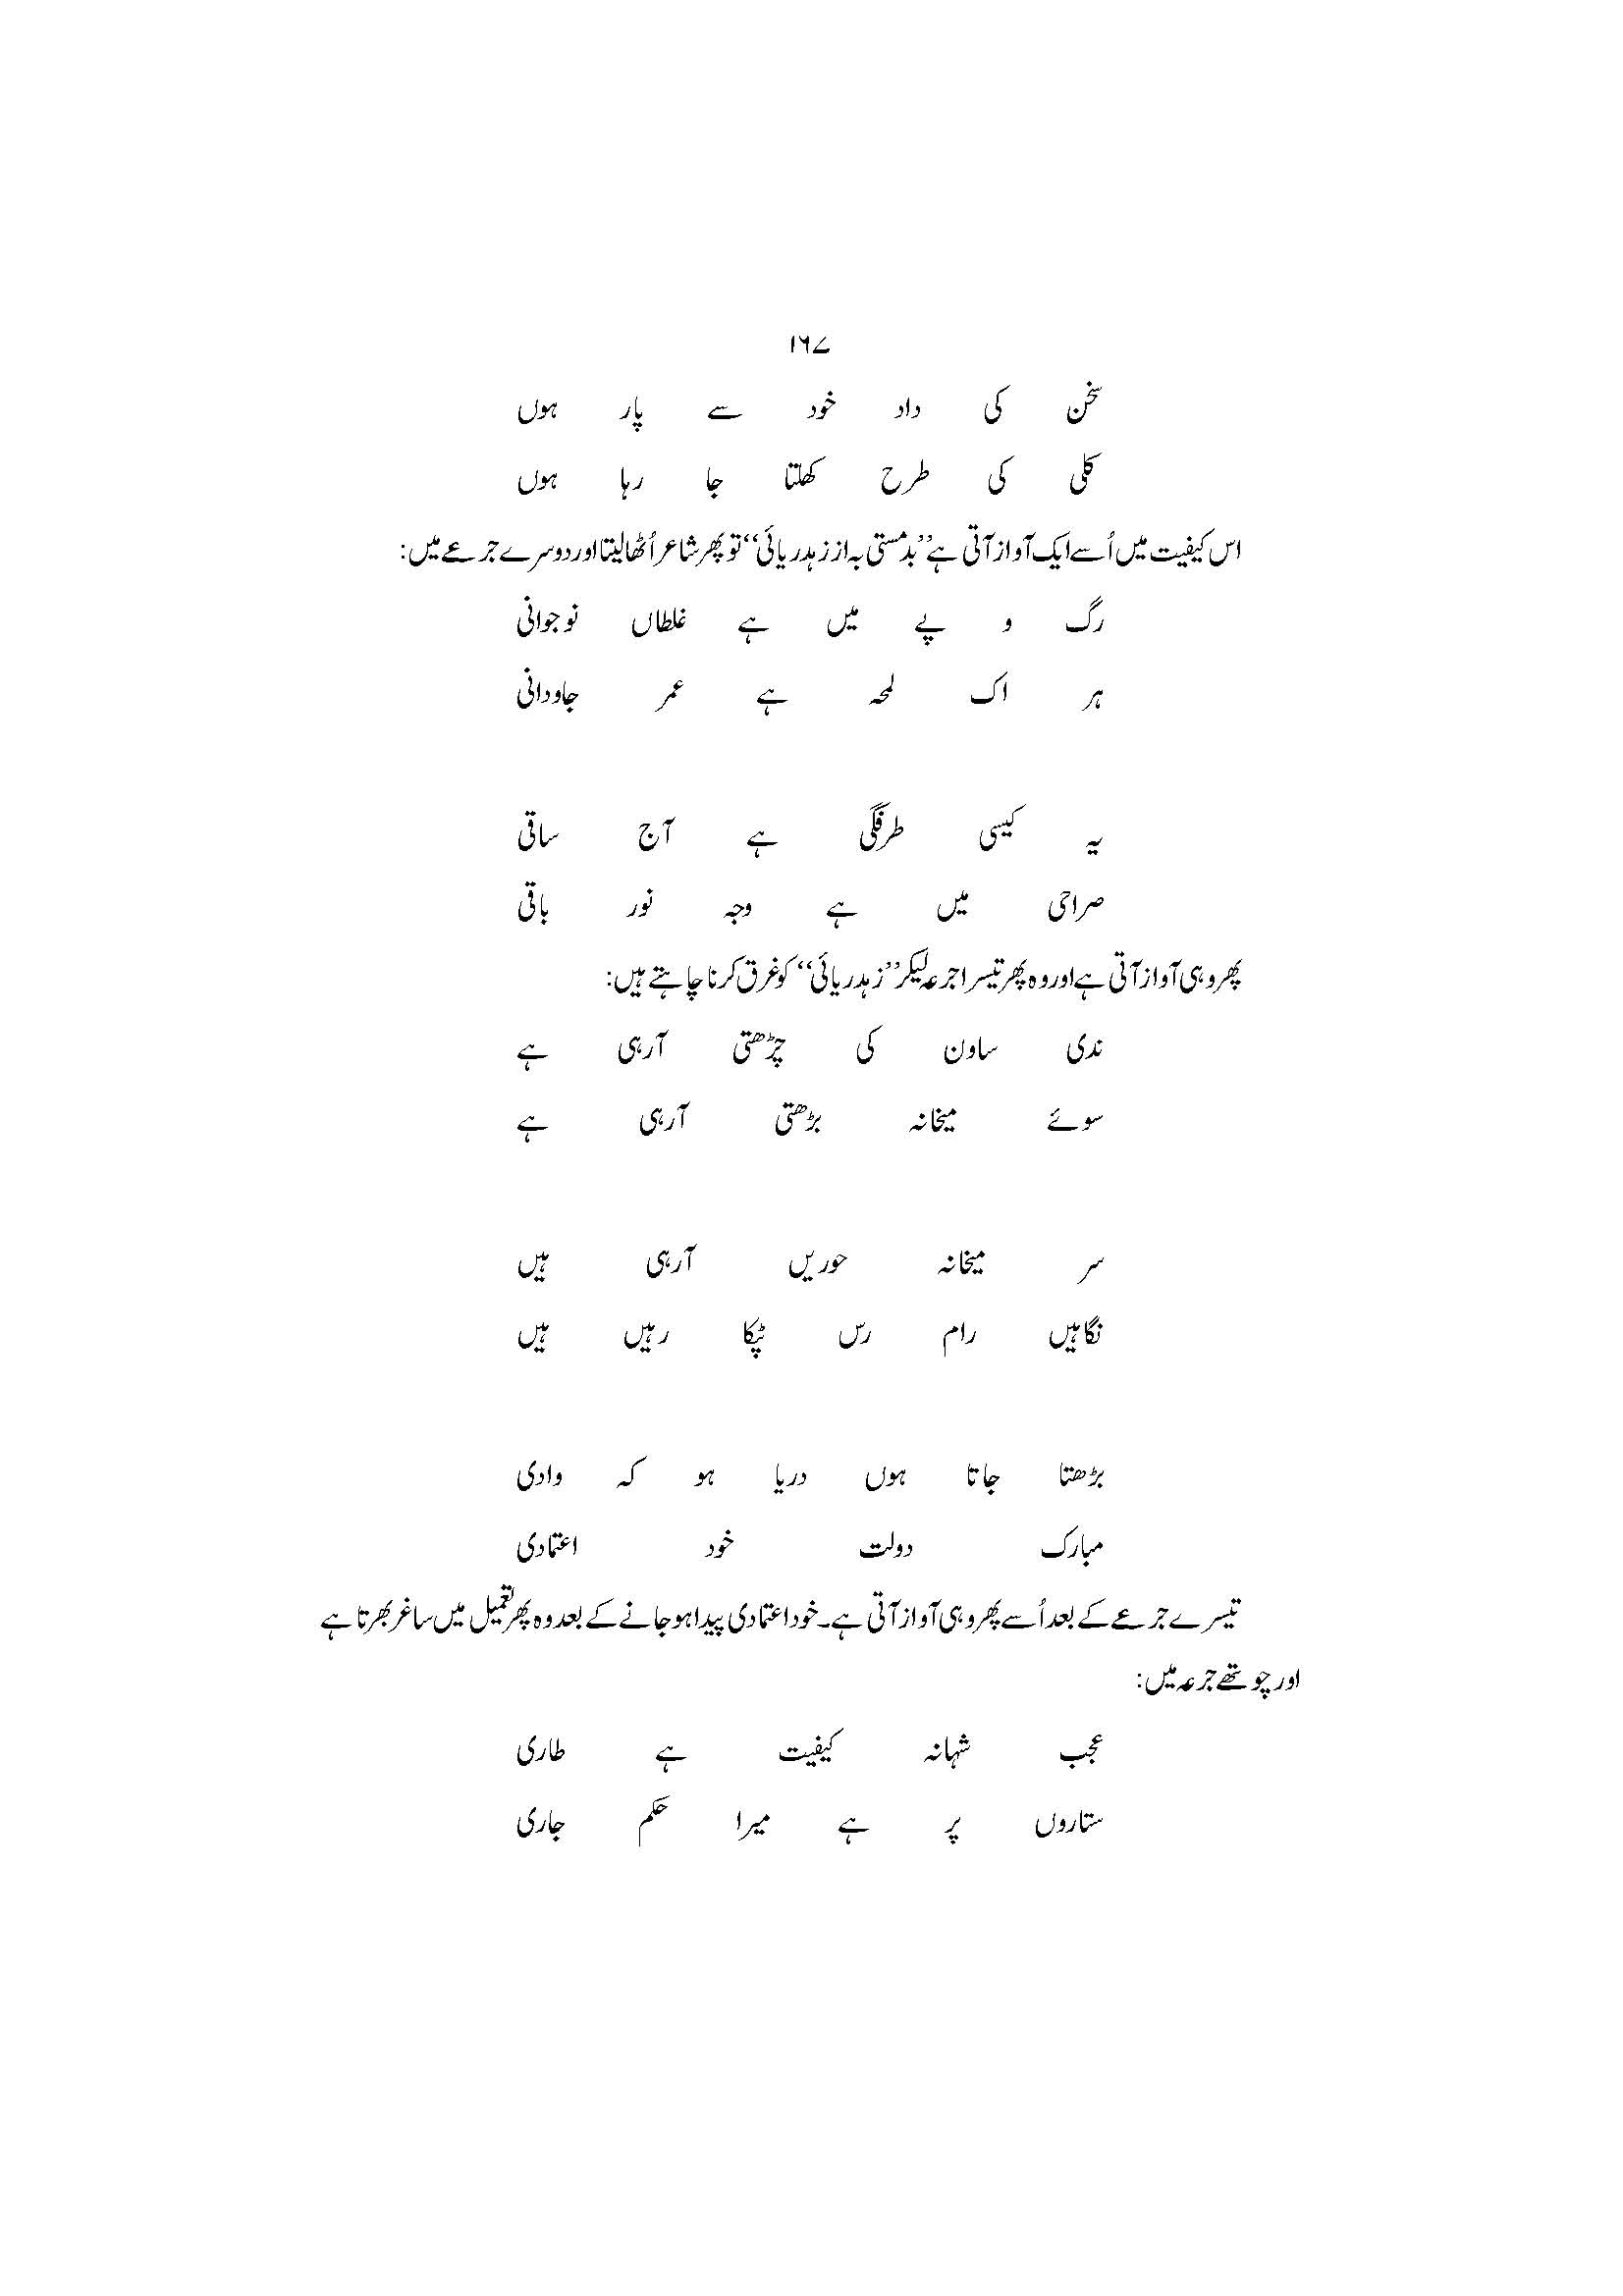 ۱۶۷
سخن کی داد خود سے پار ہوں
کلی کی طرح کھلتا جا رہا ہوں
اس کیفیت میں اُسے ایک آواز آتی ہے ’’بدمستی بہ از زہد ریائی‘‘ تو پھر شاعر اُٹھا لیتا اور دوسرے جرعے میں:
رگ و پے میں ہے غلطاں نوجوانی
ہر اک لمحہ ہے عمر جاودانی
یہ کیسی طرفگی ہے آج ساقی
صراحی میں ہے وجہ نور باقی
پھر وہی آواز آتی ہے اور وہ پھر تیسرا جرعہ لیکر ’’زہد ریائی‘‘ کو غرق کرنا چاہتے ہیں:
ندی ساون کی چڑھتی آرہی ہے
سوئے میخانہ بڑھتی آرہی ہے
سر میخانہ حوریں آرہی ہیں
نگاہیں رام رس ٹپکا رہیں ہیں
بڑھتا جاتا ہوں دریا ہو کہ وادی
مبارک دولت خود اعتمادی
تیسرے جرعے کے بعد اُسے پھر وہی آواز آتی ہے۔ خود اعتمادی پیدا ہو جانے کے بعد وہ پھر تعمیل میں ساغر بھرتا ہے
اور چوتھے جرعہ میں:
عجب شہانہ کیفیت ہے طاری
ستاروں پر ہے میرا حکم جاری